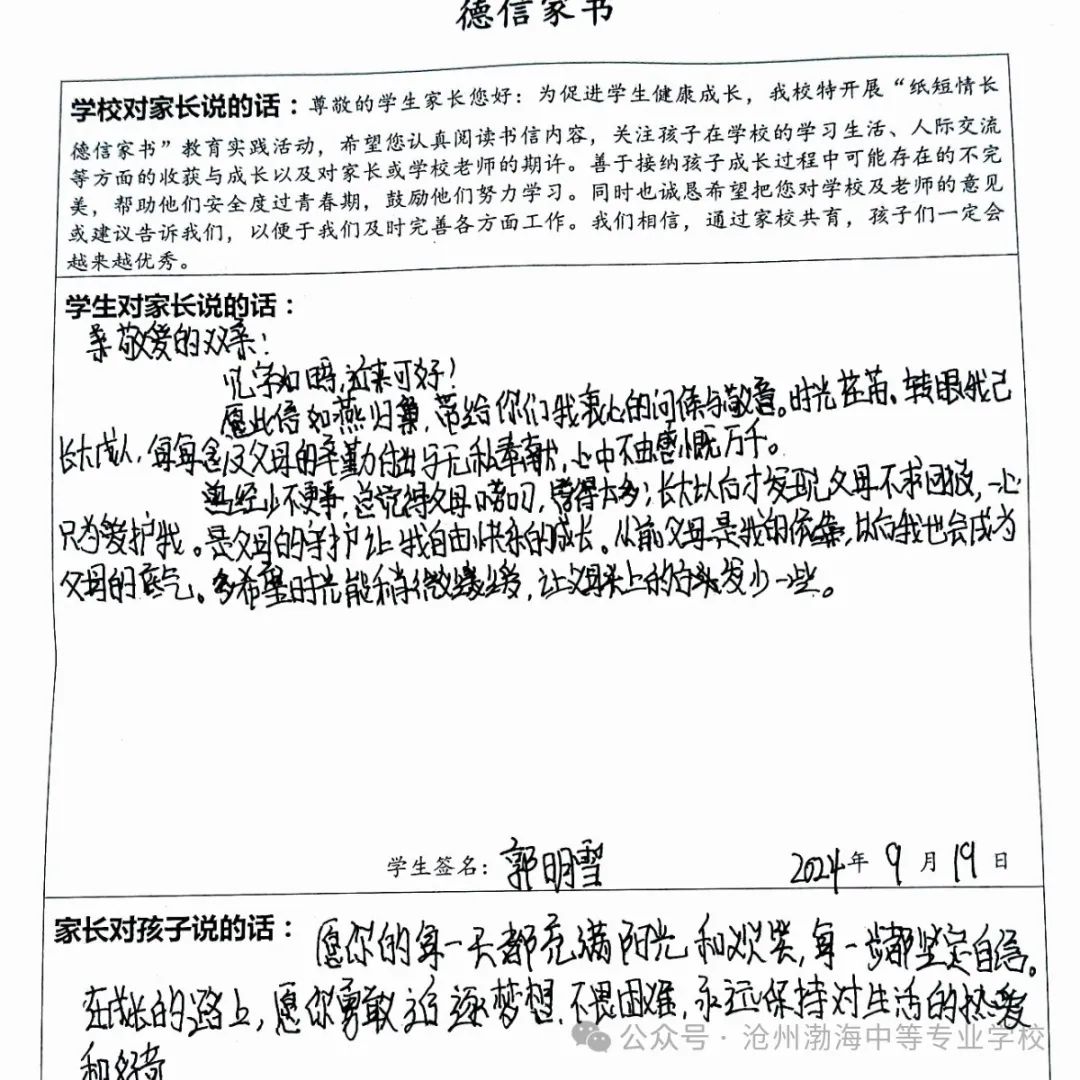 德信家书
学校对家长说的话：尊敬的学生家长您好：为促进学生健康成长，我校特开展“纸短情长
德信家书”教育实践活动，希望您认真阅读书信内容，关注孩子在学校的学习生活、人际交流
等方面的收获与成长以及对家长或学校老师的期许。善于接纳孩子成长过程中可能存在的不完
美，帮助他们安全度过青春期，鼓励他们努力学习。同时也诚恳希望把您对学校及老师的意见
或建议告诉我们，以便于我们及时完善各方面工作。我们相信，通过家校共育，孩子们一定会
越来越优秀。
学生对家长说的话：
亲敬爱的双亲：
见字如晤，近来可好！
愿此信如燕归巢，带给你们我衷心的问候与敬意。时光荏苒，转眼我已
长大成人，每每念及父母的辛勤付出与无私奉献，心中不由感慨万千。
曾经少不更事，总觉得父母唠叨，管得太多；长大以后才发现父母不求回报，一心
只为爱护我。是父母的守护让我自由快乐的成长。从前父母是我的依靠，以后我也会成为
父母的底气。多希望时光能稍微缓缓，让父母头上的白头发少一些。
学生签名：郭明雪 2024年 9 月 19 日
家长对孩子说的话：愿你的每一天都充满阳光和欢笑，每一步都坚定自信。
在成长的路上，愿你勇敢追逐梦想，不畏困难，永远保持对生活的热爱
和好奇
公众号·沧州渤海中等专业学校